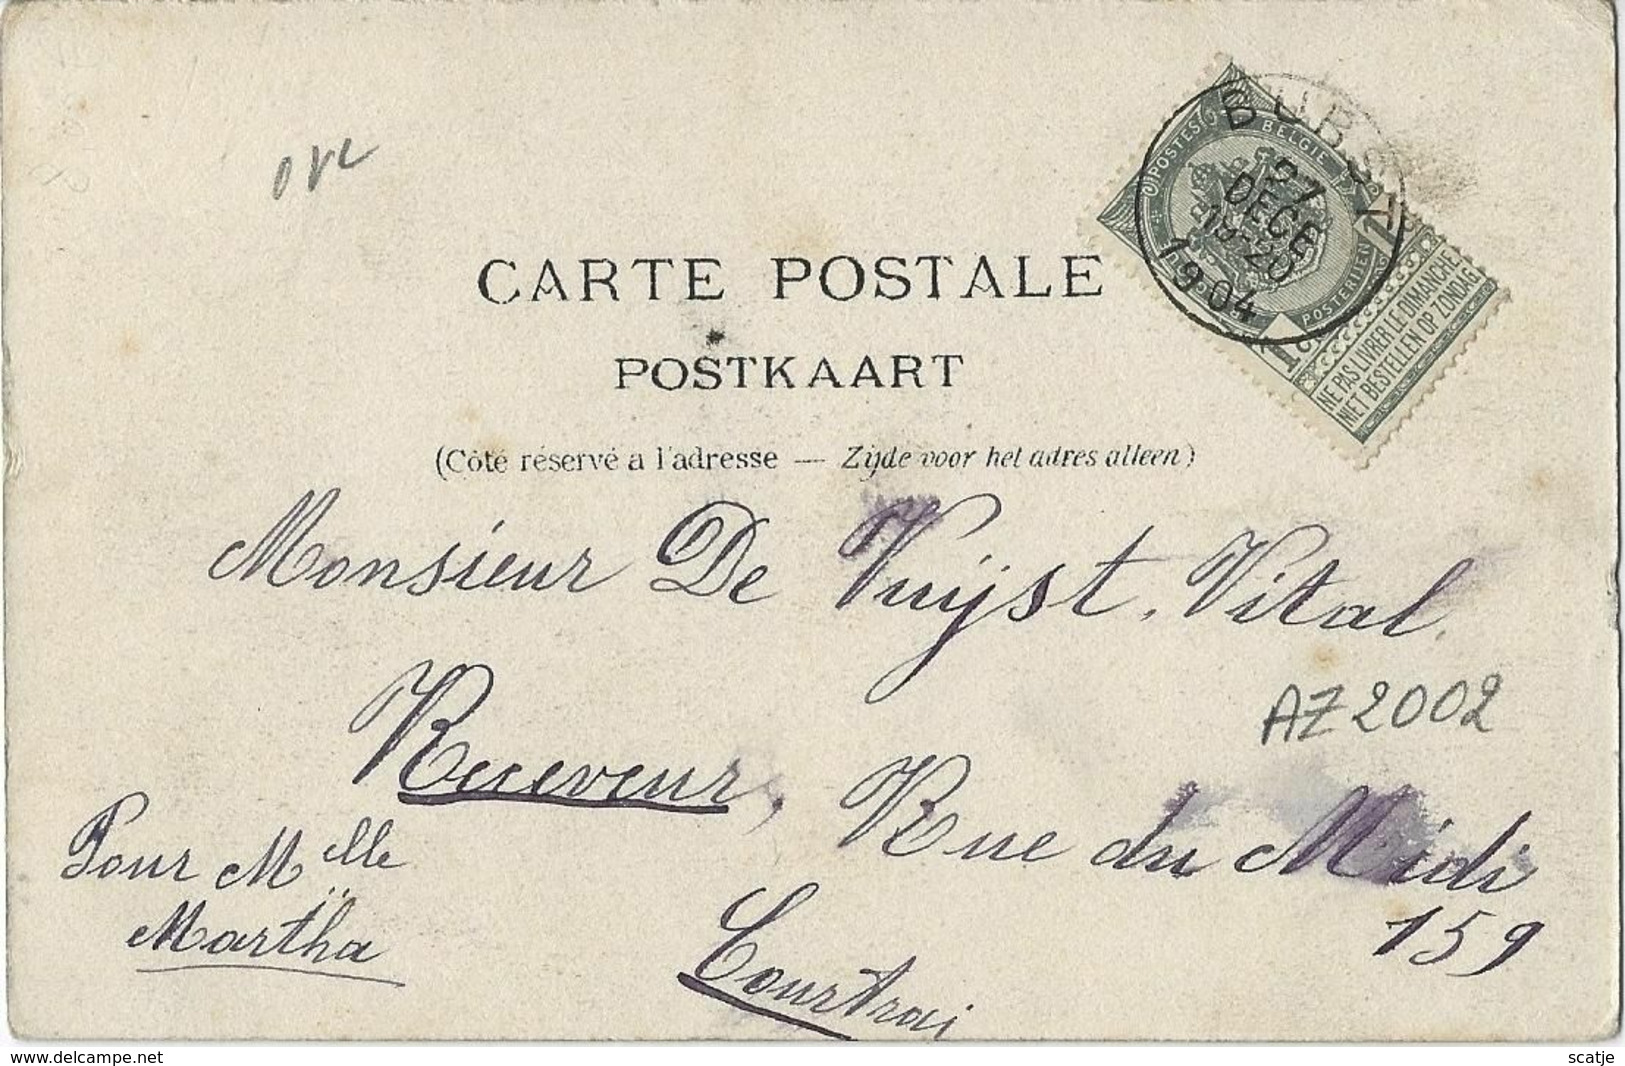 ovl
BUBST
27
DECE
19-20
1904
POSTES BELGIE
POSTERIJEN
1
1
NE PAS LIVRER LE DIMANCHE
NIET BESTELLEN OP ZONDAG
CARTE POSTALE
POSTKAART
(Côté réservé a l'adresse — Zijde voor het adres alleen)
Monsieur De Vuÿst, Vital.
AZ2002
Receveur, Rue du Midi
159
Pour Melle
Martha
Courtrai
www.delcampe.net
scatje